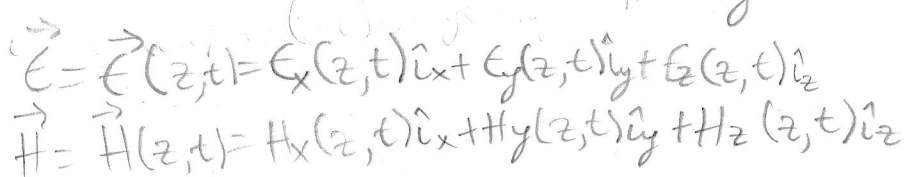 $\vec{E} = \vec{E}(z,t) = E_x(z,t)\hat{i}_x + E_y(z,t)\hat{i}_y + E_z(z,t)\hat{i}_z$
$\vec{H} = \vec{H}(z,t) = H_x(z,t)\hat{i}_x + H_y(z,t)\hat{i}_y + H_z(z,t)\hat{i}_z$